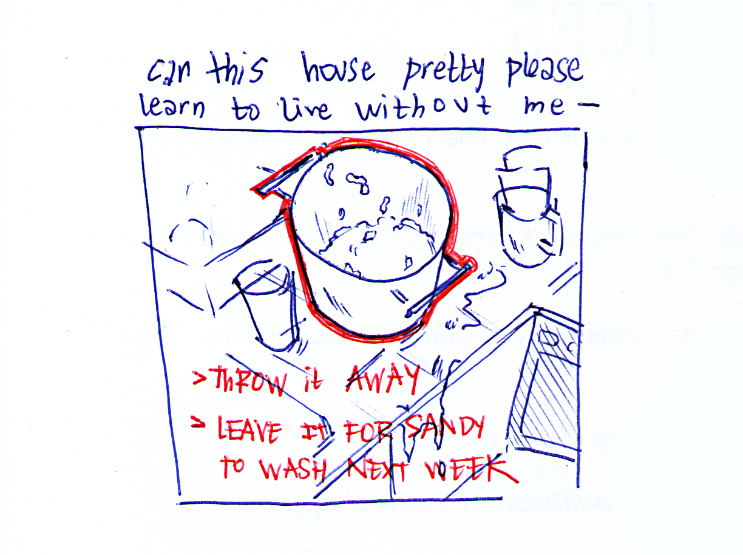 can this house pretty please
learn to live without me —
> THROW it AWAY
> LEAVE IT FOR SANDY
to WASH NEXT WEEK